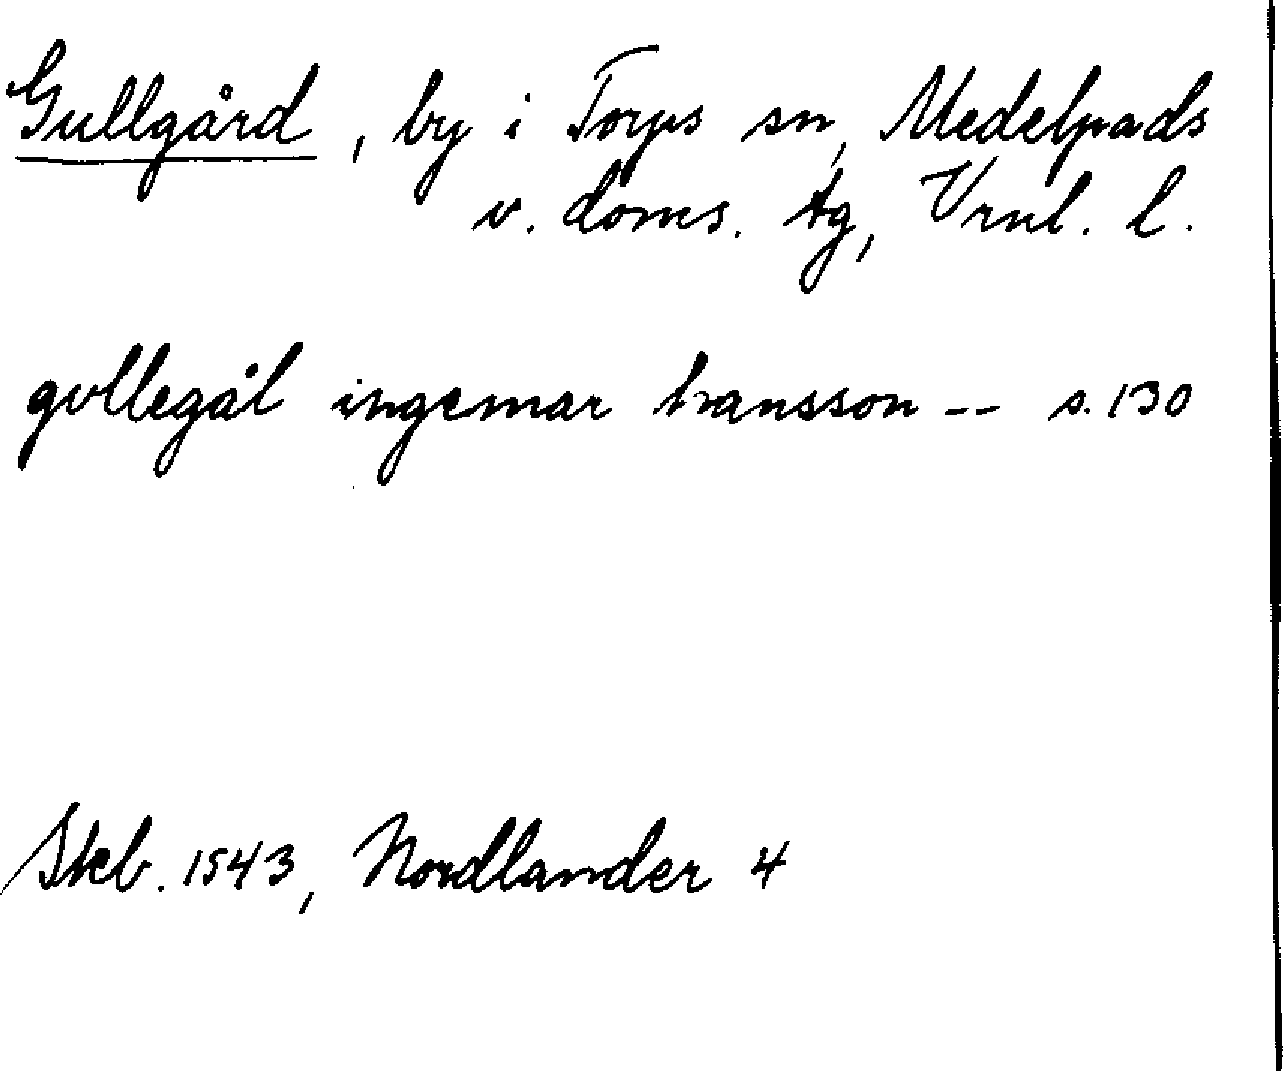 Gullgård, by i Torps sn, Medelpads
v. doms. tg, Vrnl. l.
gvllegål ingemar hansson -- s. 130
Skb. 1543, Nordlander 4